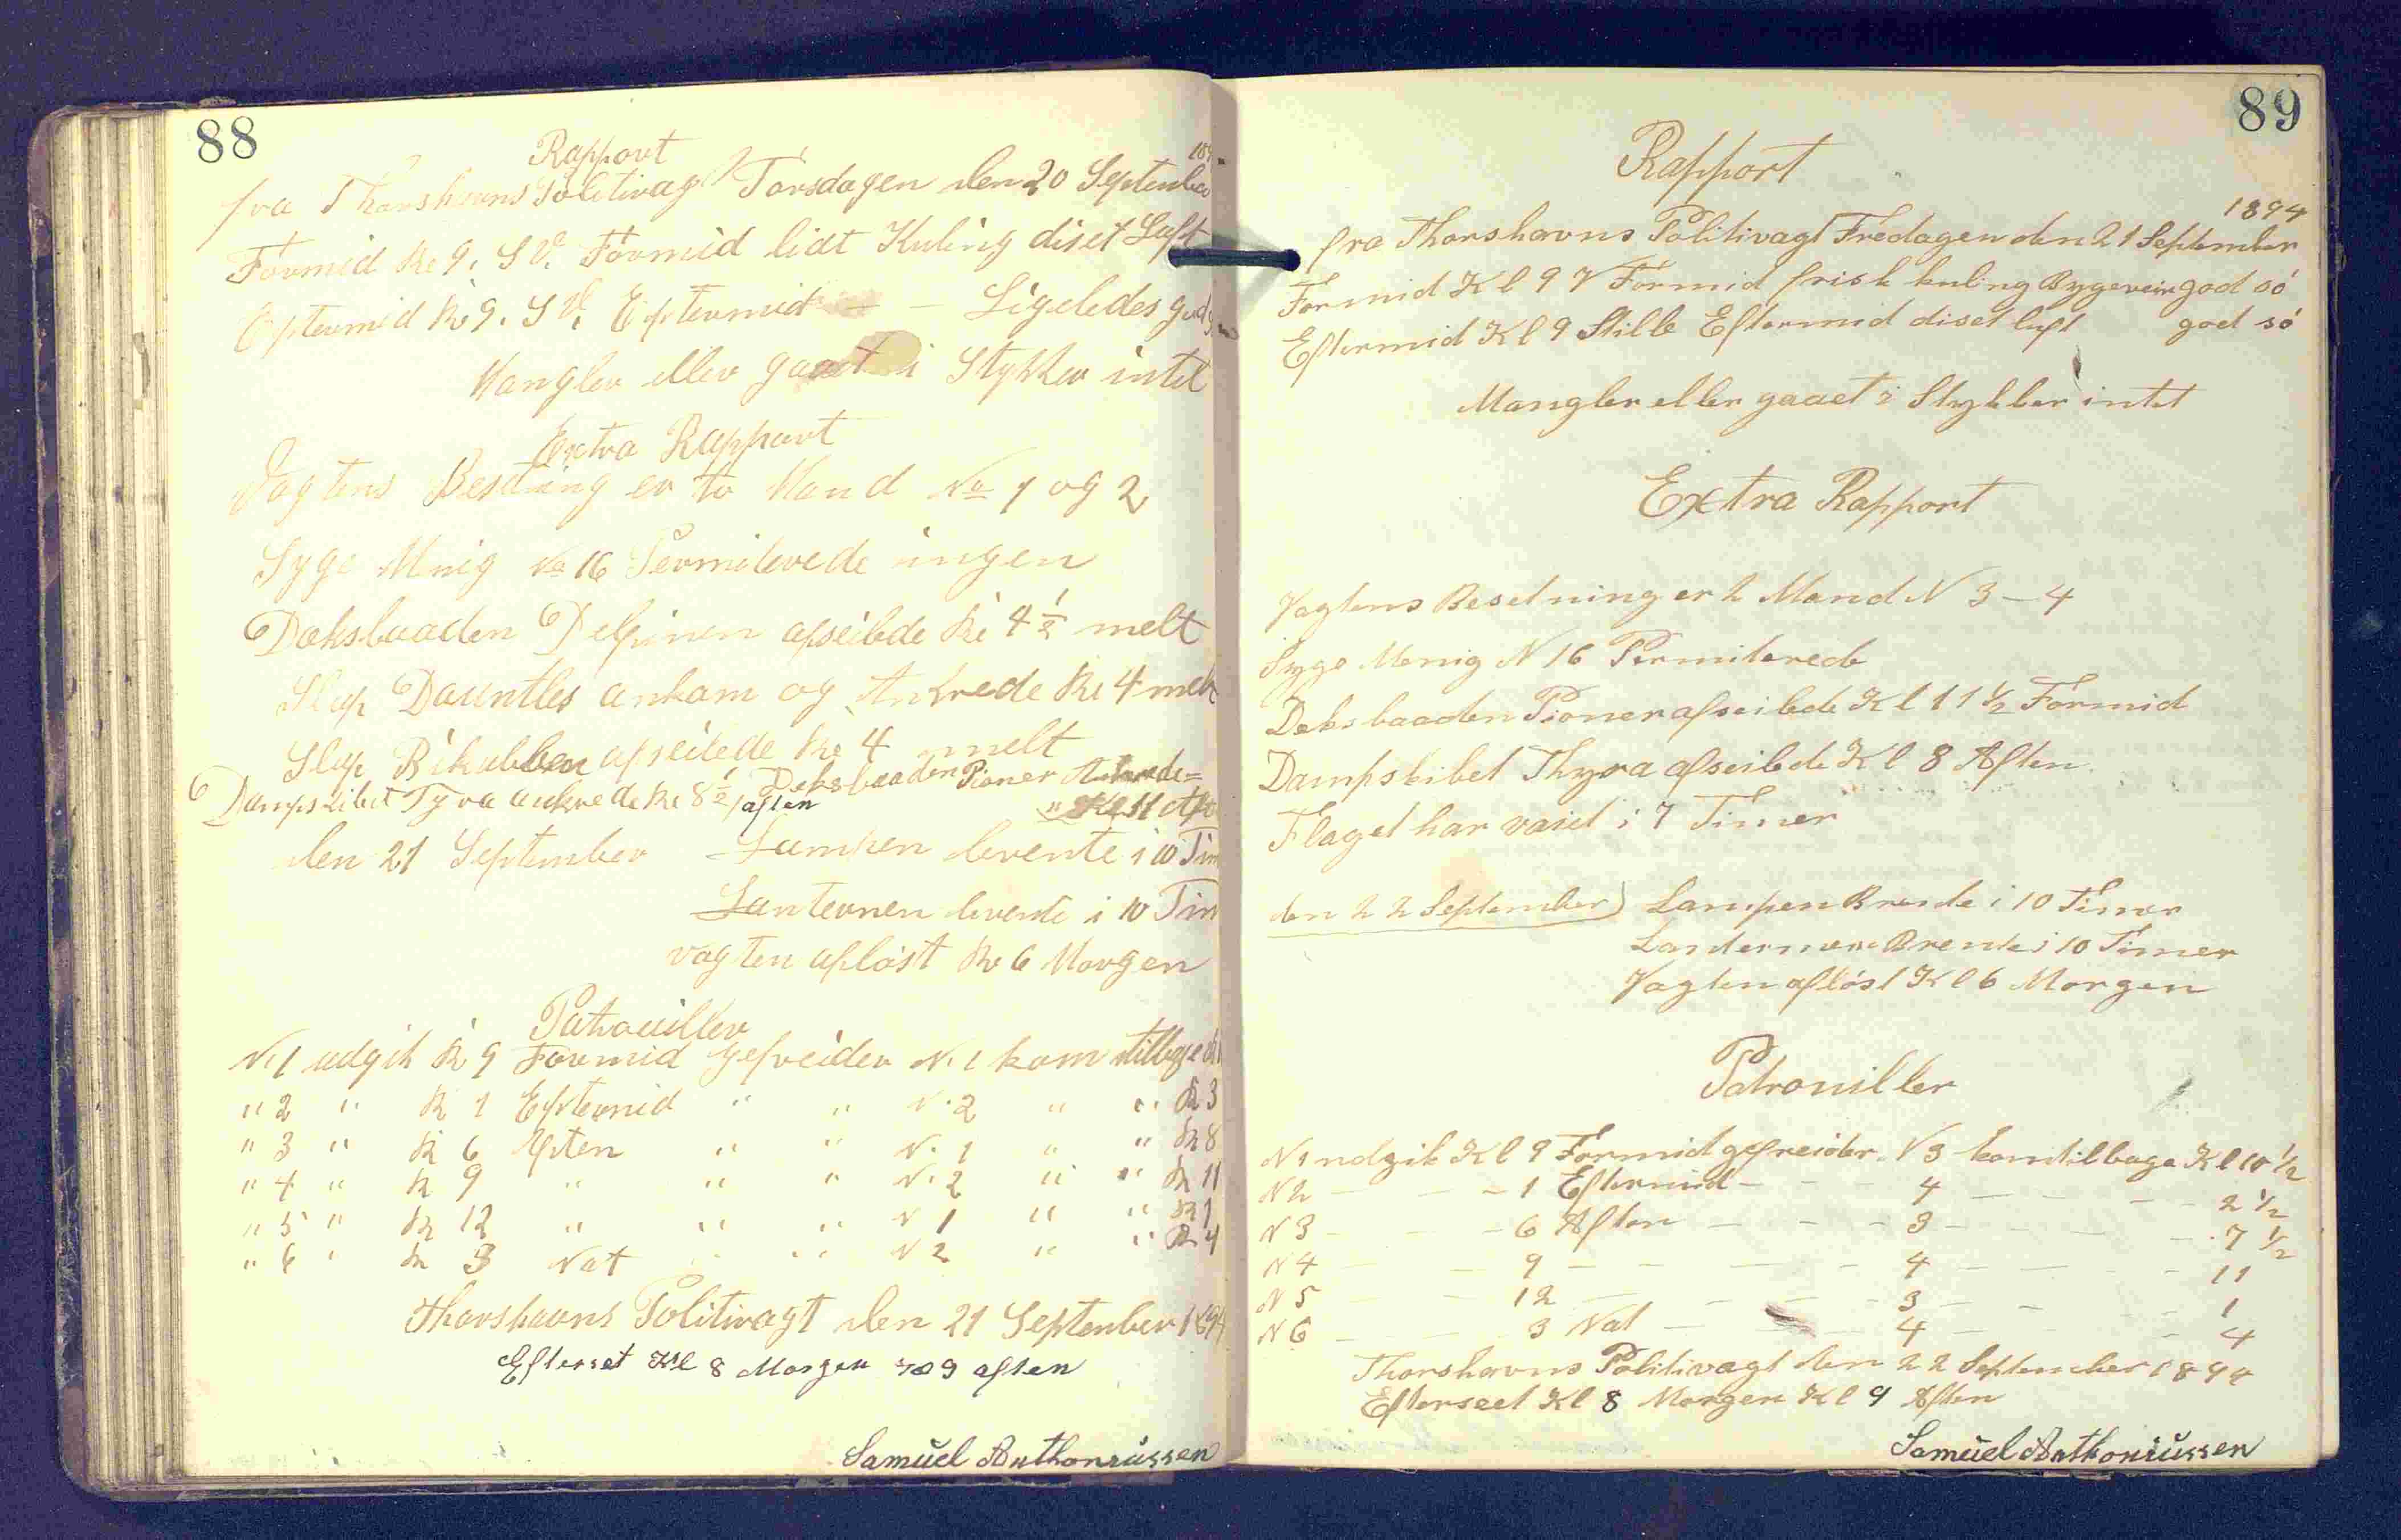 88
Rapport
fra Thorshavns Politivagt Torsdagen den 20 September
Formid Kl 9. SV. Formid lidt Kuling diset Luft
Eftermid Kl 9. SV. Eftermid — — Ligeledes god
Mangler eller gaaet i Stykker intet
Extra Rapport
Vagtens Besetning er to Mand No 1 og 2
Syge Menig No 16 Permiterede ingen
Daksbaaden Delfinen afseilede Kl 4 1/2 melt
Slup Dauntles ankom og Ankrede Kl 4 melt
Slup Bikubben afseilede Kl 4 melt
Dampskibet Tyra ankrede Kl 8 1/2 aften Deksbaaden Pioner Ankrede=
" Kl 11 Aft
den 21 September Lampen brente i 10 Tim
Lanternen brente i 10 Tim
vagten afløst Kl 6 Morgen
Patrouiller
N.1 udgik Kl 9 Formid gefreider N.1 kom tilbage
" 2 " Kl 1 Eftermid " " N.2 " " Kl 3
" 3 " Kl 6 Aften " " N.1 " " Kl 8
" 4 " Kl 9 " " " N.2 " " Kl 11
" 5 " Kl 12 " " " N 1 " " Kl 1
" 6 " Kl 3 Nat " " N 2 " " Kl 4
Thorshavns Politivagt den 21 September 1894
Efterset Kl 8 Morgen og 9 aften
Samuel Anthoniussen
89
Rapport
1894
fra Thorshavns Politivagt Fredagen den 21 September
Formid Kl 9 V Formid frisk kuling Bygeveir god só
Eftermid Kl 9 Stille Eftermid diset luft god só
Mangler eller gaaet i Stykker intet
Extra Rapport
Vagtens Besetning er 2 Mand N 3 — 4
Syge Menig N 16 Permiterede
Deksbaaden Pioner afseilede Kl 11 1/2 Formid
Dampskibet Thyra afseilede Kl 8 Aften
Flaget har vaiet i 7 Timer
den 22 September) Lampen Brende i 10 Timer
Landernern Brente i 10 Timer
Vagten afløst Kl 6 Morgen
Patrouiller
N 1 udgik Kl 9 Formid gefreider N 3 kom tilbage Kl 10 1/2
N 2 — — — 1 Eftermid — — — 4 — — — — 2 1/2
N 3 — — — 6 Aften — — — 3 — — — — 7 1/2
N 4 — — — 9 — — — — 4 — — — — 11
N 5 — — — 12 — — — — 3 — — — — 1
N 6 — — — 3 Nat — — — 4 — — — — 4
Thorshavns Politivagt den 22 September 1894
Efterseet Kl 8 Morgen Kl 9 Aften
Samuel Anthoniussen